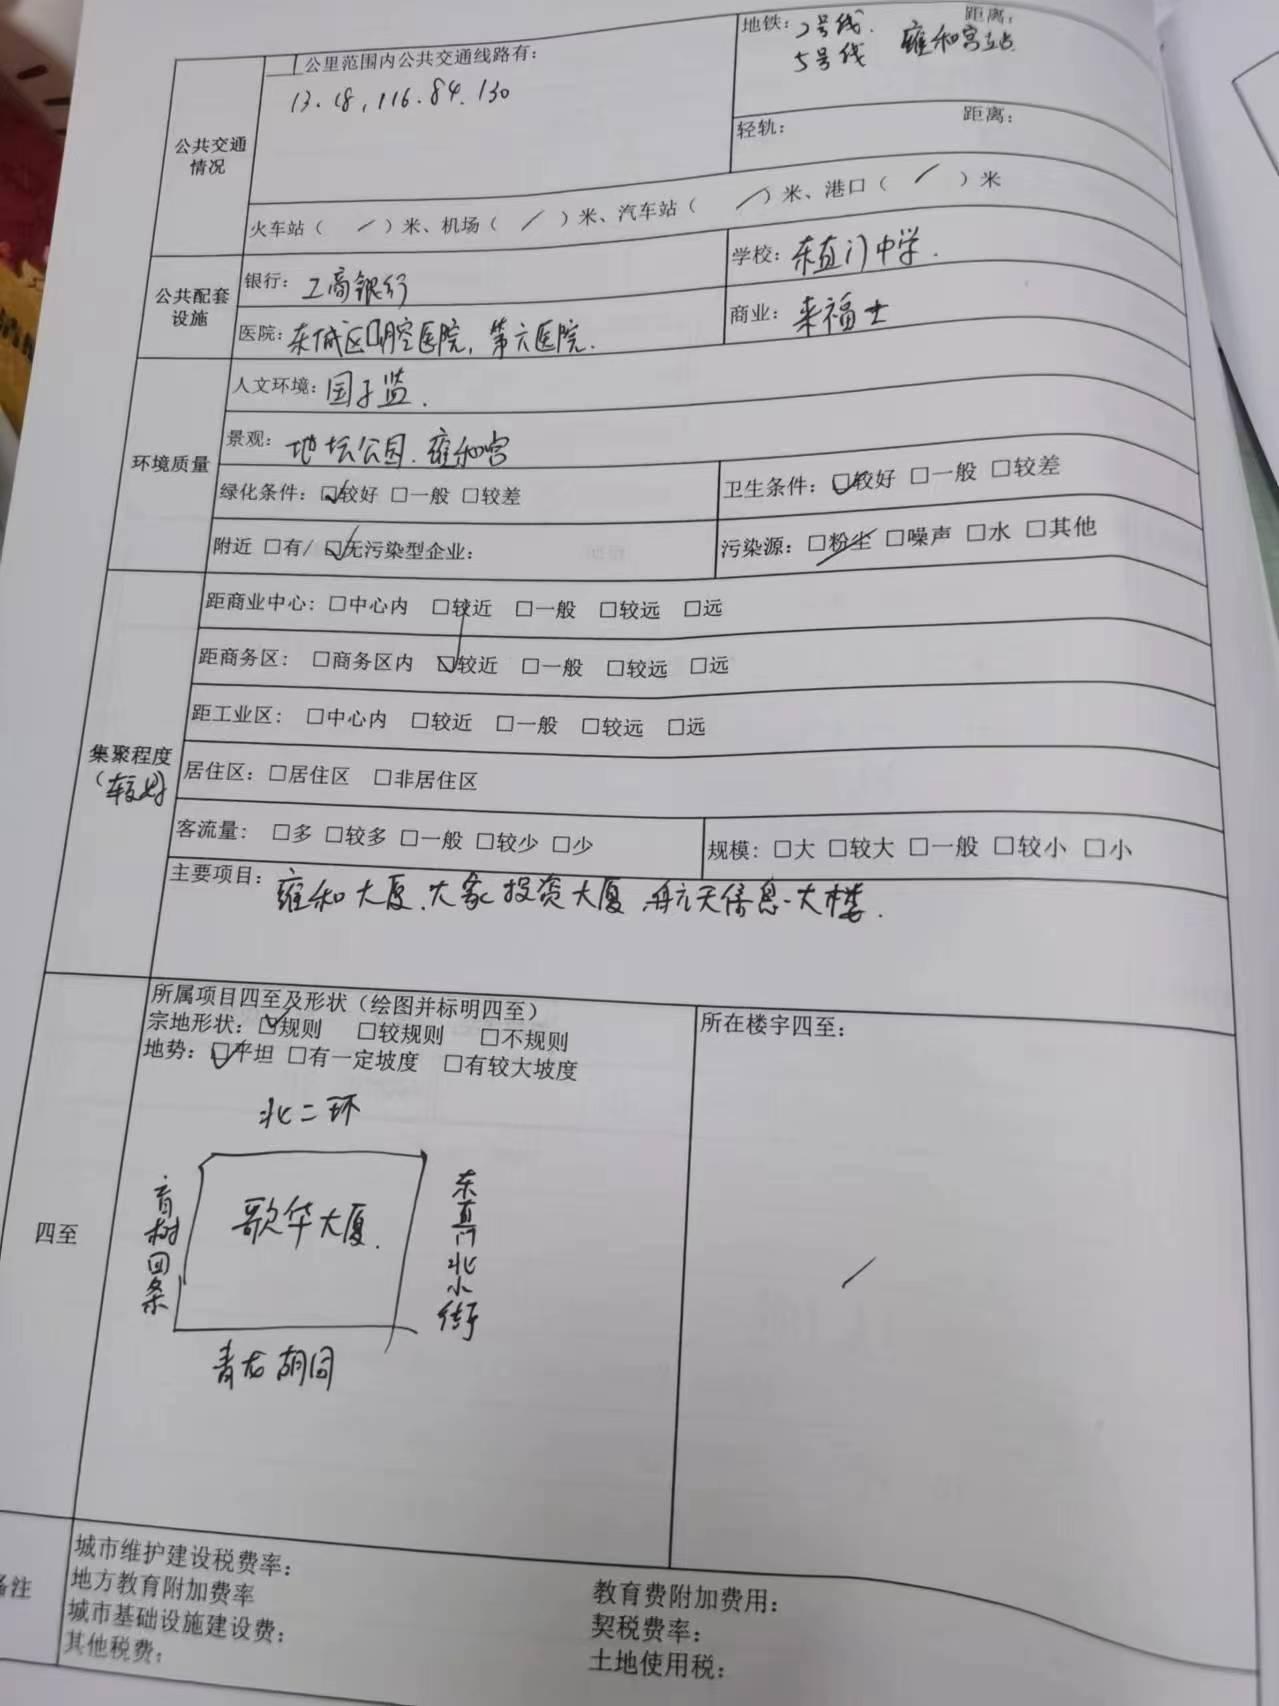 公里范围内公共交通线路有：
13. 18, 116. 84. 130
地铁：2号线. 距离：
5号线 雍和宫站
公共交通
情况
轻轨： 距离：
火车站（ / ）米、机场（ / ）米、汽车站（ / ）米、港口（ / ）米
公共配套
设施
银行：工商银行
学校：东直门中学.
医院：东城区口腔医院, 第六医院.
商业：来福士
环境质量
人文环境：国子监.
景观：地坛公园.雍和宫
绿化条件：☑较好 □一般 □较差
卫生条件：☑较好 □一般 □较差
附近 □有/ ☑无污染型企业：
污染源：□粉尘 □噪声 □水 □其他
集聚程度
（较好
距商业中心：□中心内 □较近 □一般 □较远 □远
距商务区：□商务区内 ☑较近 □一般 □较远 □远
距工业区：□中心内 □较近 □一般 □较远 □远
居住区：□居住区 □非居住区
客流量：□多 □较多 □一般 □较少 □少
规模：□大 □较大 □一般 □较小 □小
主要项目：雍和大厦、大家投资大厦、航天信息大楼.
四至
所属项目四至及形状（绘图并标明四至）
宗地形状：☑规则 □较规则 □不规则
地势：☑平坦 □有一定坡度 □有较大坡度
所在楼宇四至：
/
北二环
树
条
歌华大厦.
东直门北小街
青龙胡同
备注
城市维护建设税费率：
地方教育附加费率
城市基础设施建设费：
其他税费：
教育费附加费用：
契税费率：
土地使用税：